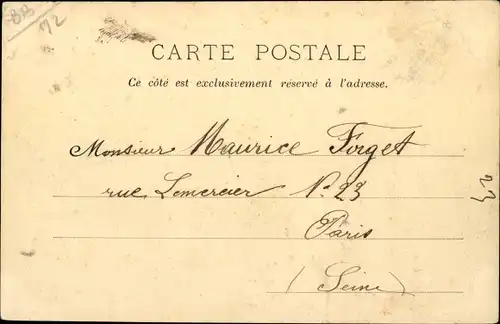 88
72
CARTE POSTALE
Ce côté est exclusivement réservé à l'adresse.
Monsieur Maurice Forget
rue Lemercier N. 23
Paris
(Seine)